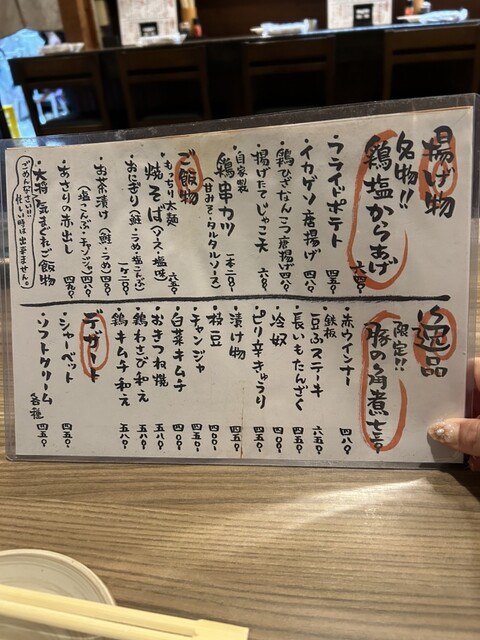 揚げ物
名物!!
鶏塩からあげ 六四〇
・フライドポテト 四五〇
・イカゲソ唐揚げ 四八〇
・鶏ひざなんこつ唐揚げ 四八〇
・揚げたてじゃこ天 六〇〇
自家製
・鶏串カツ 一本二八〇
甘みそ・タルタルソース
ご飯物
もっちり太麺
・焼そば(ソース・塩味) 六五〇
・おにぎり(鮭・うめ・塩こんぶ)
一ケ二二〇
・お茶漬け(鮭・うめ) 四〇〇
(塩こんぶ・チャンジャ) 四五〇
・あさりの赤出し 四五〇
・大将気まぐれご飯物
ごめんなさい!!
忙しい時は出来ません。
逸品
限定!!
豚の角煮 七三〇
・赤ウインナー 四八〇
鉄板
・豆ふステーキ 六五〇
・長いもたんざく 四五〇
・冷奴 四〇〇
・ピリ辛きゅうり 四五〇
・漬け物 四五〇
・枝豆 四〇〇
・チャンジャ 四五〇
・白菜キムチ 四〇〇
・おきつね焼 五八〇
・鶏わさび和え 五八〇
・鶏キムチ和え 五八〇
デザート
・シャーベット 四五〇
・ソフトクリーム 各種 四五〇